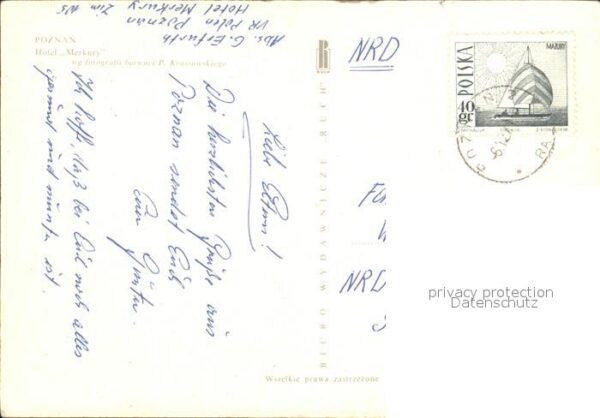 POZNAŃ
Hotel „Merkury"
wg fotografii barwnej P. Krassowskiego
Abs. G. Erfurth
VR Polen Poznań
Hotel Merkury Zim
Liebe Eltern!
Die herzlichsten Grüße aus
Poznan sendet Euch
Euer Günter.
Ich hoffe, daß bei Euch noch alles
gesund und munter ist.
BIURO WYDAWNICZE „RUCH"
Wszelkie prawa zastrzeżone
NRD
NRD
POLSKA
MAZURY
40 gr
POZNAŃ
privacy protection
Datenschutz